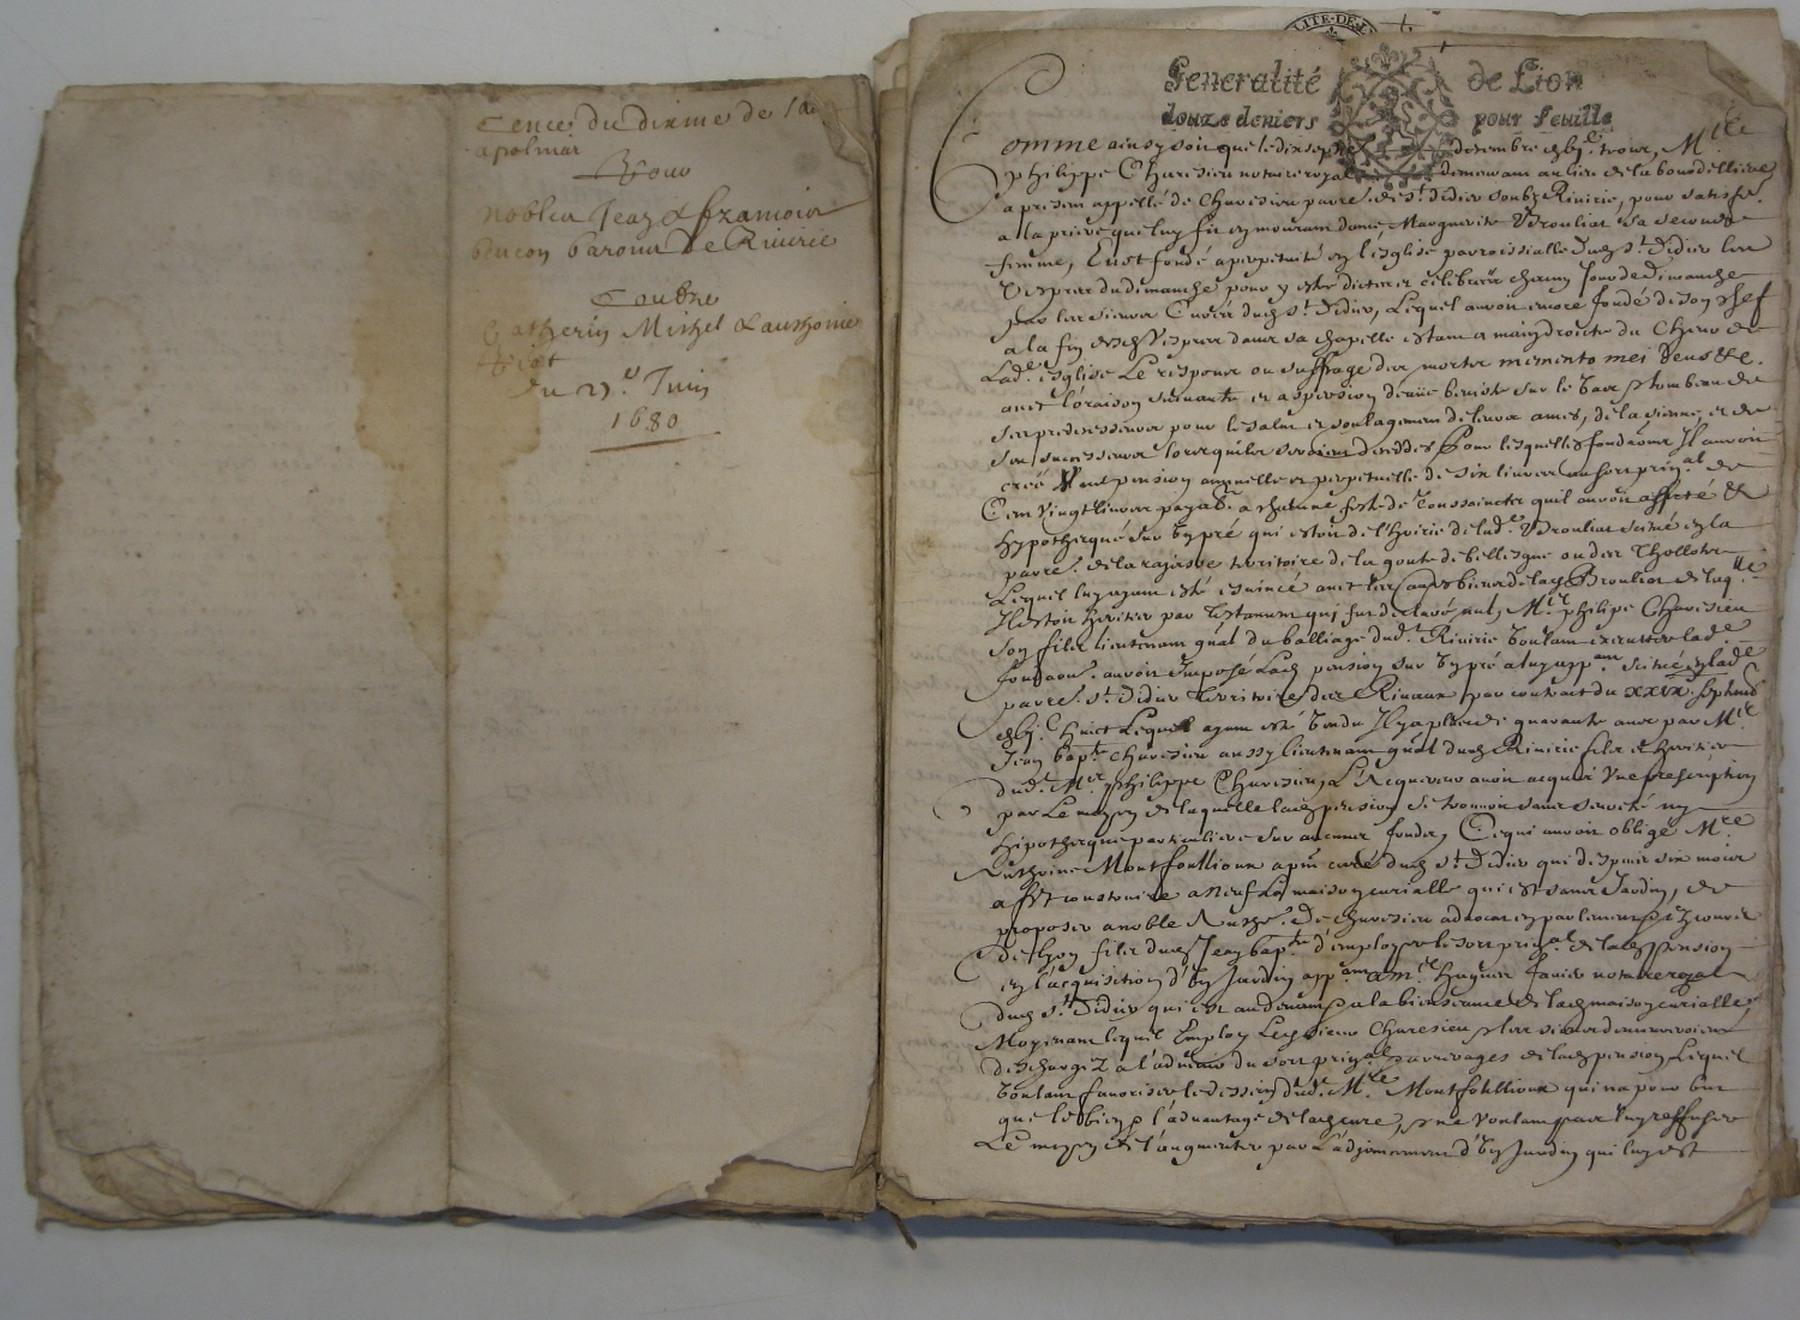 Cence du dixme de la
apolinar
Pour
nobles Jean & francoix
bencon barons de Riuirie
Contre
Catherin Michel & anthoine
du 27.e Juin
1680
LITE-DE-L
Generalité de Lion
douze deniers pour feuille
Comme ainsy soit que le dixsept decembre trois, M.re
philippe Charesieu notaire royal demeurant au lieu de la bourdelliere
a present appellé de Charesieu parre. de s.t didier soubz Riuirie, pour satisf.e
a la priere que luy fit en mourant dame Marguerite Brouliat sa seconde
femme, Eust fondé a perpetuité en l'esglise parroissialle dud s.t Didier les
Vespres du dimanche pour y estre dictes et celebrées chacun Jour de Dimanche
par les sieurs Curés dud s.t Didier, Lequel auroit encore fondé de son chef
a la fin desd Vespres dans sa chapelle estant a main droicte du Cheur de
Lad.e esglise Le respons ou suffrage des mortz memento mei Deus &c.
auec l'oraison suiuante et aspersion d'eaue beniste sur le Vas & tombeau de
ses predecesseurs pour le salut et soulagement de leurs ames, de la sienne, et de
ses successeurs lors quilz seroient decedés, Pour lesquelles fondaons Il auroit
creé Vne pension annuelle et perpetuelle de six liures au sort prin.al de
Cent Vingt liures payab. a chacune feste de Toussainctz quil auroit affecté &
hypothequé sur Vn pré qui estoit de l'hoirie de lad.e Brouliat scitué en la
parre. de larajasse territoire de la goute de bellesgue ou des Thollots
Lequel luy ayant esté euincé auec les autres biens de lad Brouliat de laq.lle
Il estoit heritier par Testament qui fut declaré nul, M.re philipe Charesieu
son filz lieutenant gnãl du balliage dud.t Riuirie Voulant executer lad.e
fondaon. auroit Imposé Lad pension sur Vn pré a luy app.ant scitué en lad.e
parre. s.t Didier Territoire des Riuaux par contract du XXIX. septemb
huict Lequel ayant esté Vendu Il y a plus de quarante ans par M.re
Jean bap.te Charesieu aussy lieutenant gnãl dud Riuirie filz et heritier
dud.t M.re philippe Charesieu, L'Acquereur auoit acquis Vne prescription
par Le moyen de laquelle lad pension se trouuoit sans seureté ny
hipotheque particuliere sur aucuns fondz, Ce qui auroit obligé M.re
Anthoine Montfoullioux apñt curé dud s.t Didier qui despuis six mois
a fait construire a Neuf La maison curialle qui est sans Jardin, de
proposer a noble de Charesieu aduocat en parlement
de Lyon filz dud Jean bap.te d'employer le sort prin.al de lad pension
en l'acquisition d'Vn Jardin app.ant a M.re hugues fauier notaire royal
dud s.t Didier qui est au deuant & a la bienseance de lad maison curialle,
Moyenant lequel Employ Led sieur Charesieu & les siens demeureroient
deschargéz a l'aduenir du sort prin.al & arrerages de lad pension Lequel
Voulant fauoriser le dessein dud.t M.re Montfoullioux qui na pour but
que le bien & l'aduantage de lad cure, & ne Voulant pas luy reffuser
Le moyen de l'augmenter par L'adjoncement d'Vn Jardin qui luy est